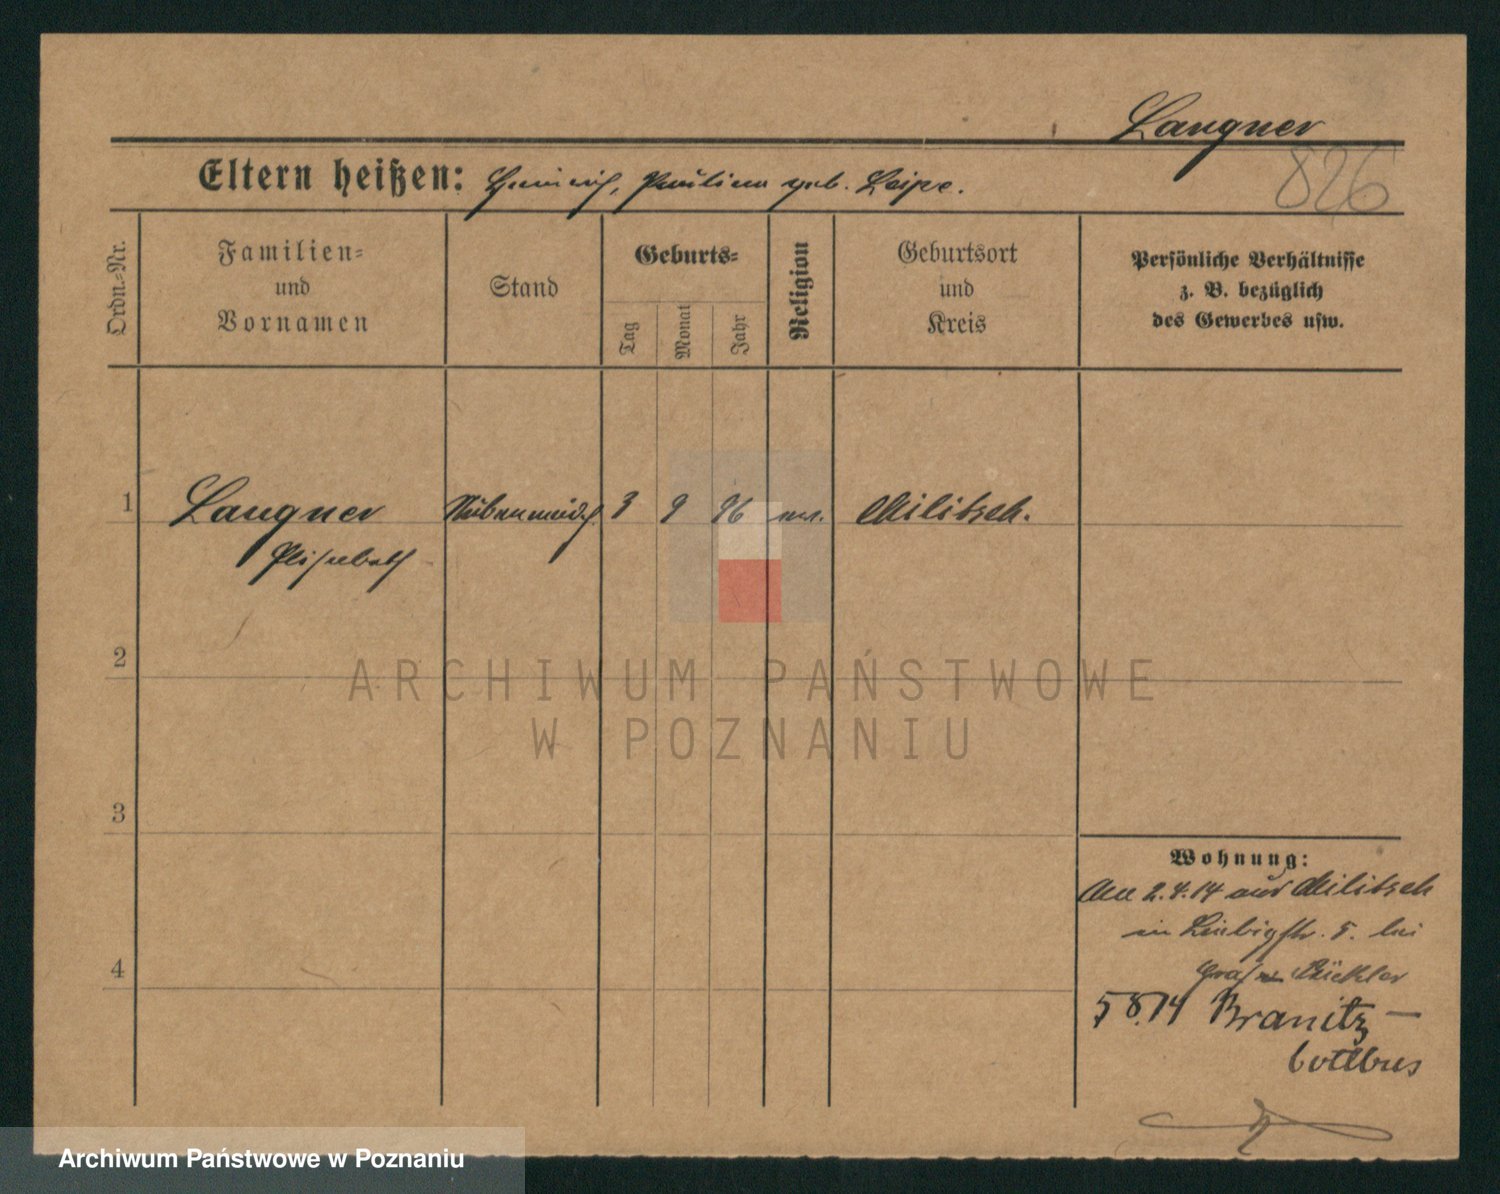 Langner
826
Eltern heißen: Heinrich, Pauline geb. Leipe.
Ordn.-Nr.
Familien-
und
Vornamen
Stand
Geburts-
Tag
Monat
Jahr
Religion
Geburtsort
und
Kreis
Persönliche Verhältnisse
z. B. bezüglich
des Gewerbes usw.
1 Langner Stubenmädch 3 9 96 ev. Militsch.
Elisabeth
2
3
4
Wohnung:
Am 2.4.14 aus Militsch
in Liebigstr. 5. bei
Graf v Pückler
5 8.14 Branitz -
Cottbus
ARCHIWUM PAŃSTWOWE
W POZNANIU
Archiwum Państwowe w Poznaniu